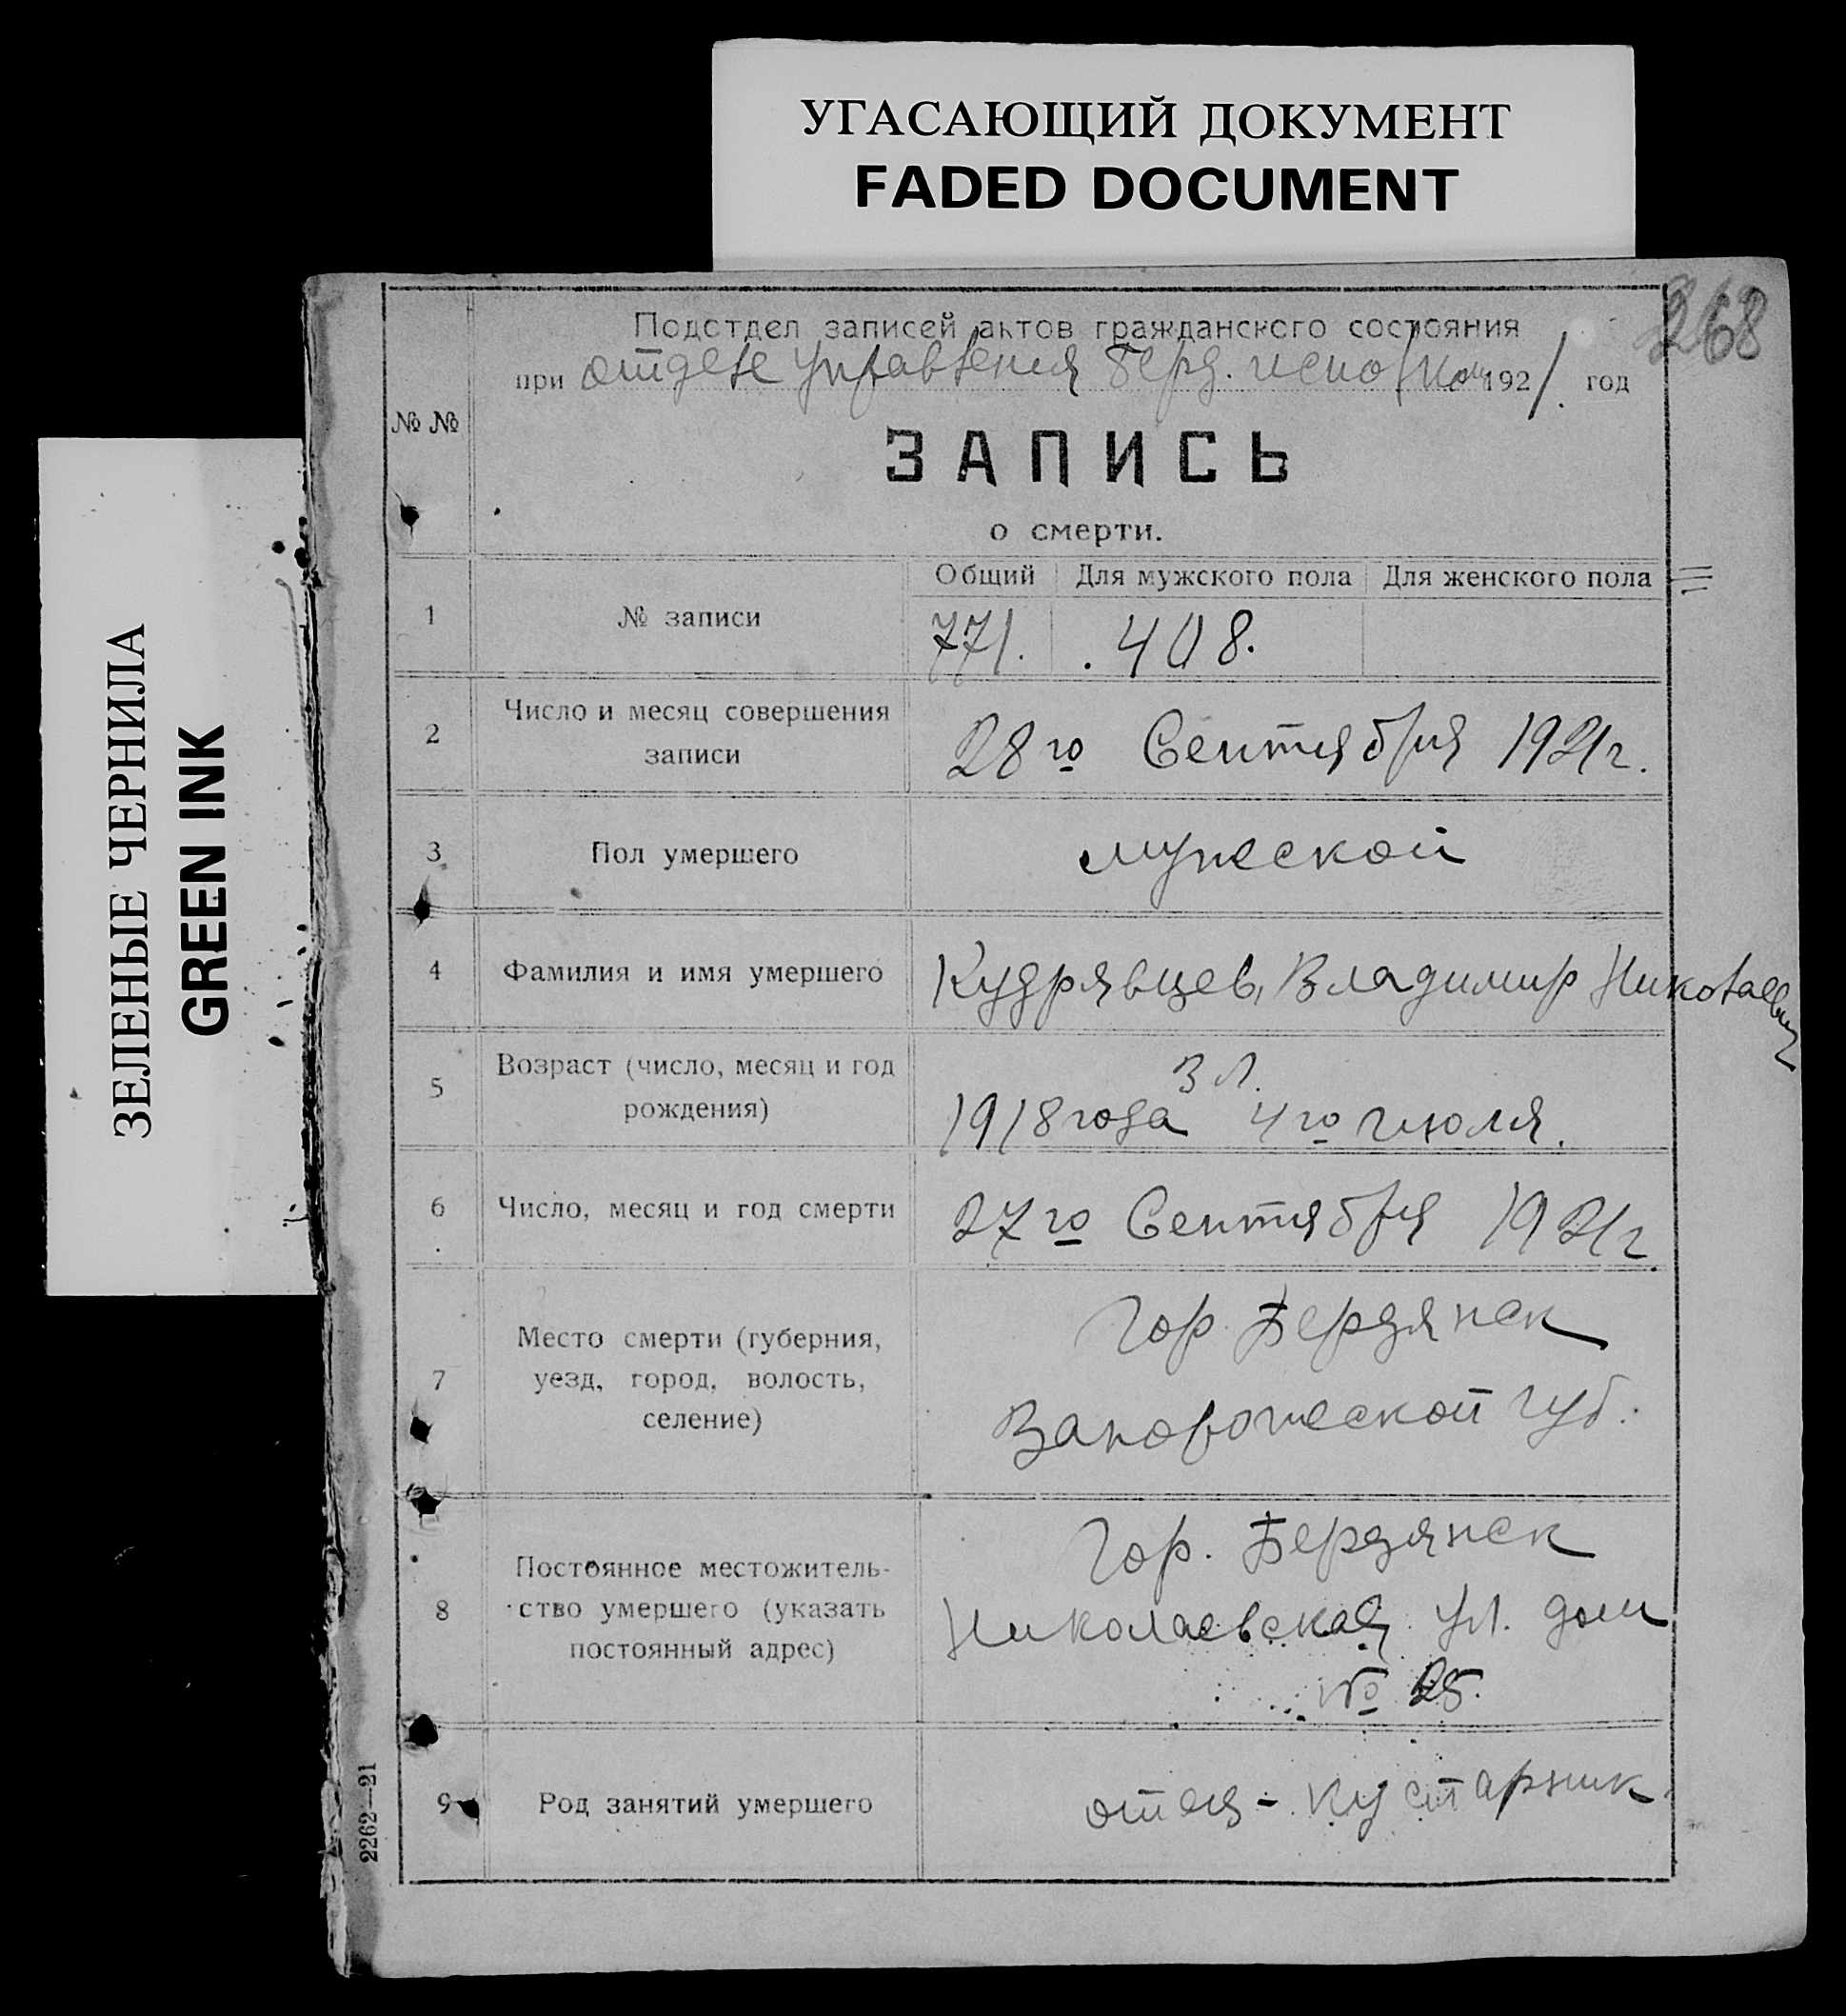 УГАСАЮЩИЙ ДОКУМЕНТ
FADED DOCUMENT
ЗЕЛЕНЫЕ ЧЕРНИЛА
GREEN INK
268
Подотдел записей актов гражданского состояния
при отделе управления Берд. исполком 1921 год
№ №
ЗАПИСЬ
о смерти.
Общий Для мужского пола Для женского пола
1 № записи 771. 408.
2 Число и месяц совершения
записи
28го Сентября 1921г.
3 Пол умершего мужеской
4 Фамилия и имя умершего Кудрявцев, Владимир Николаевич
5 Возраст (число, месяц и год
рождения)
3 л.
1918 года 4го июля.
6 Число, месяц и год смерти 27го Сентября 1921г.
7 Место смерти (губерния,
уезд, город, волость,
селение)
Гор. Бердянск
Запорожеской губ.
8 Постоянное местожитель-
ство умершего (указать
постоянный адрес)
Гор. Бердянск
Николаевская ул. дом
№ 25.
9 Род занятий умершего отец - кустарник
2262—21